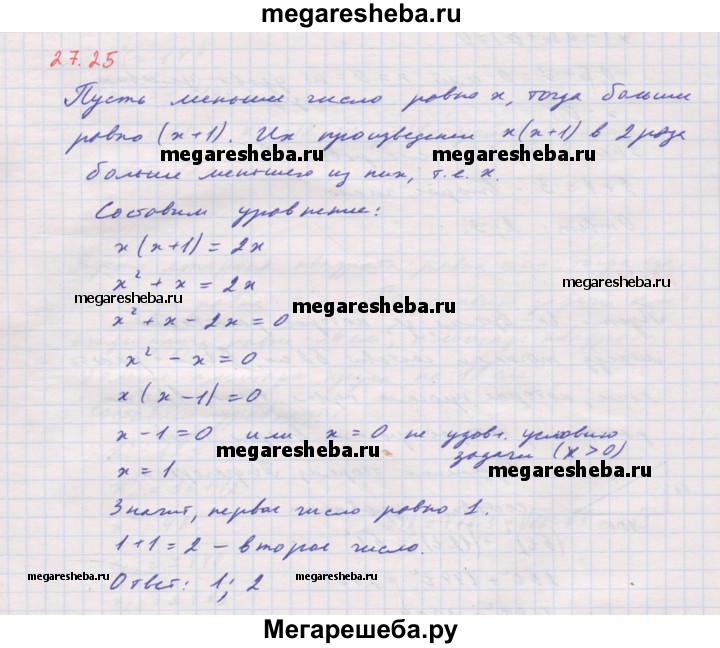 megaresheba.ru
27.25
Пусть меньшее число равно x, тогда большее
равно (x+1). Их произведение x(x+1) в 2 раза
megaresheba.ru megaresheba.ru
больше меньшего из них, т.е. x.
Составим уравнение:
x(x+1)=2x
x²+x=2x
megaresheba.ru megaresheba.ru megaresheba.ru
x²+x-2x=0
x²-x=0
x(x-1)=0
x-1=0 или x=0 не удовл. условию
задачи (x>0)
megaresheba.ru megaresheba.ru
x=1
Значит, первое число равно 1.
1+1=2 – второе число.
Ответ: 1; 2
megaresheba.ru megaresheba.ru megaresheba.ru
Мегарешеба.ру